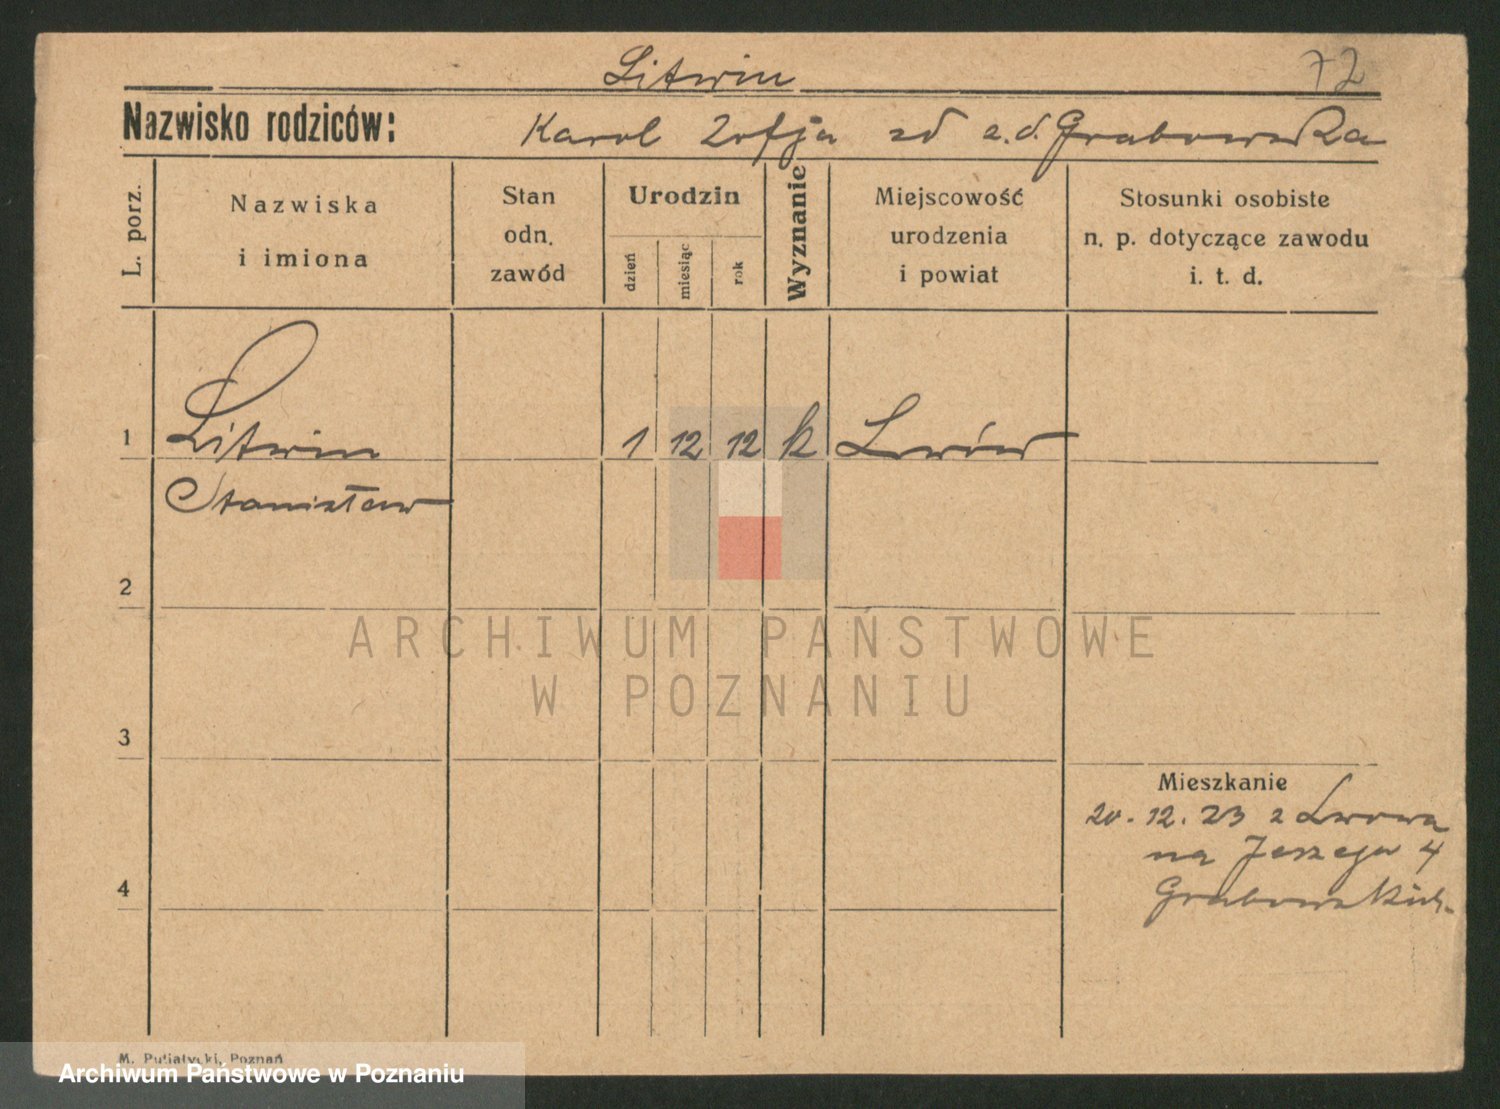 Litwin
72
Nazwisko rodziców: Karol Zofja zd
Grabowska
L. porz.
Nazwiska
i imiona
Stan
odn.
zawód
Urodzin
dzień
miesiąc
rok
Wyznanie
Miejscowość
urodzenia
i powiat
Stosunki osobiste
n. p. dotyczące zawodu
i. t. d.
1 Litwin 1 12 12 k Lwów
Stanisław
2
ARCHIWUM PAŃSTWOWE
W POZNANIU
3
Mieszkanie
20.12.23 z Lwowa
na 4
4
M. Putiatycki, Poznań
Archiwum Państwowe w Poznaniu